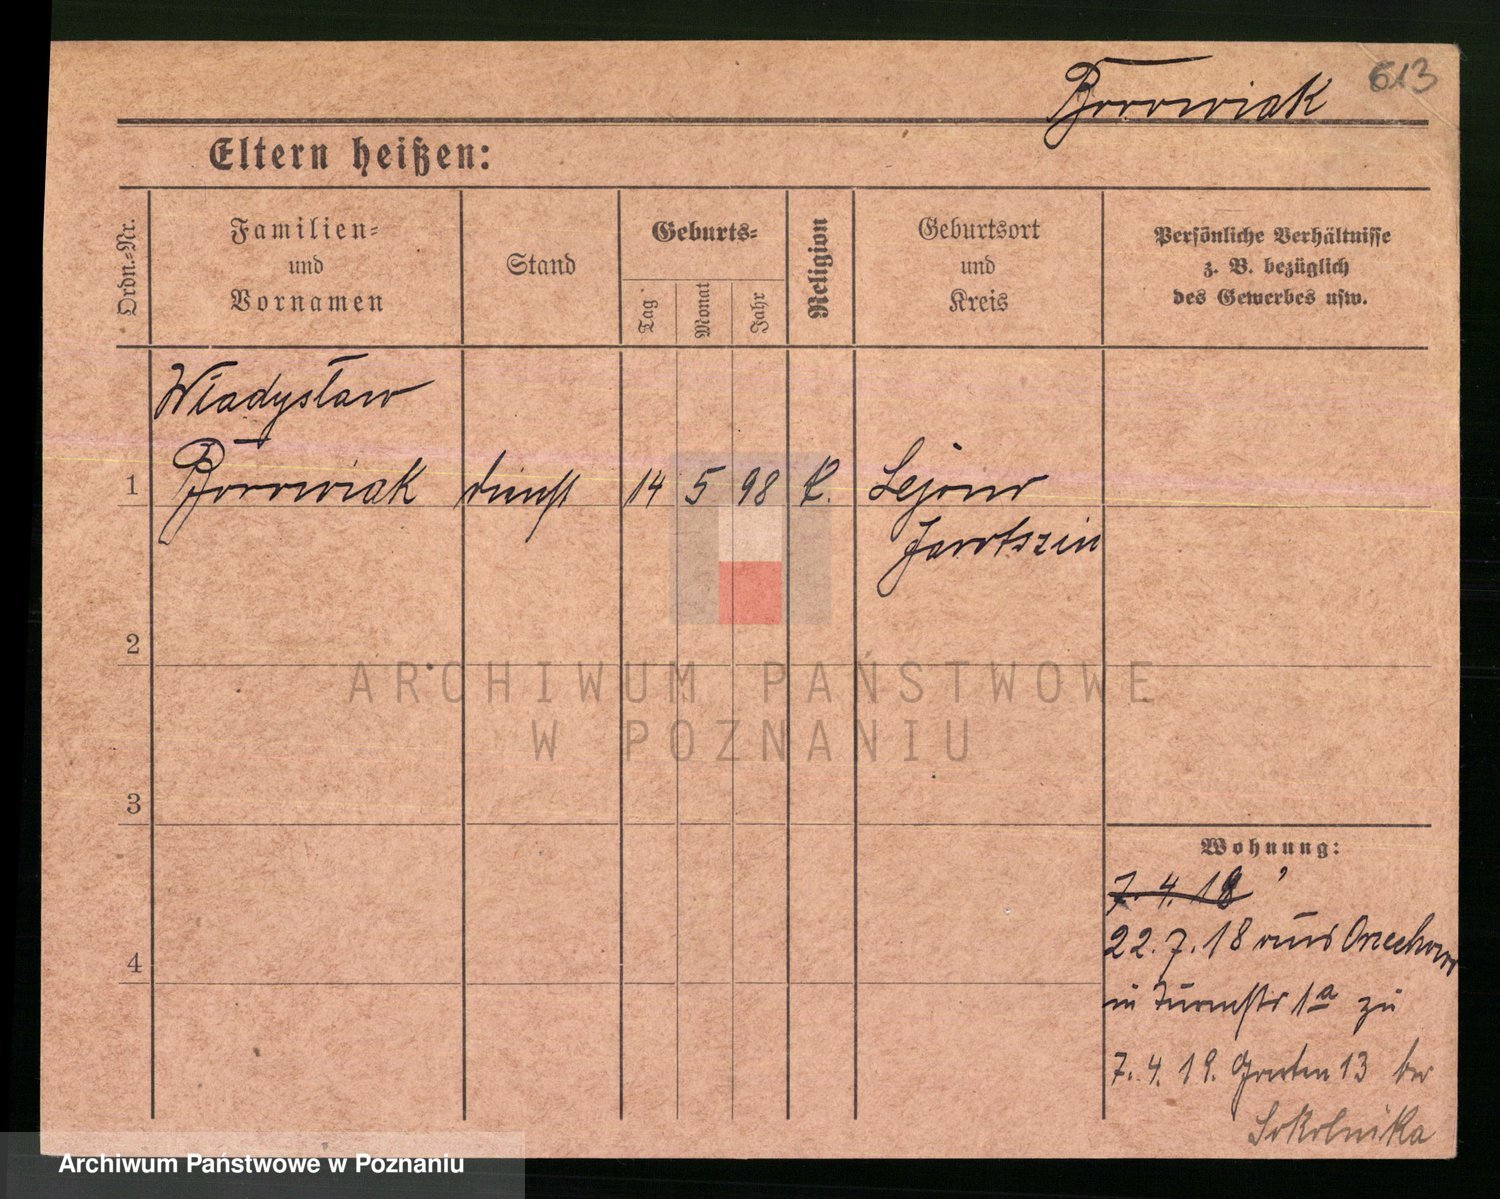 613
Borowiak
Eltern heißen:
Ordn.-Nr.
Familien-
und
Vornamen
Stand
Geburts-
Tag
Monat
Jahr
Religion
Geburtsort
und
Kreis
Persönliche Verhältnisse
z. B. bezüglich
des Gewerbes usw.
Władysław
1 Borowiak dienst 14 5 98 k.
Jarotszin
2
3
4
Wohnung:
7. 4. 18
22. 7. 18 aus Orzechowo
in Turmstr 1a zu
7. 4. 19. 13 bei
Sokolnika
ARCHIWUM PAŃSTWOWE
W POZNANIU
Archiwum Państwowe w Poznaniu